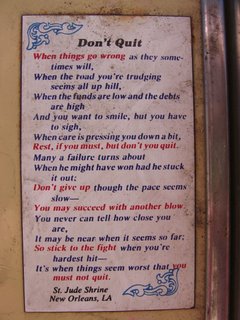 Don't Quit
When things go wrong as they some-
times will,
When the toad you're trudging
seems all up hill,
When the funds are low and the debts
are high
And you want to smile, but you have
to sigh,
When care is pressing you down a bit,
Rest, if you must, but don't you quit.
Many a failure turns about
When he might have won had he stuck
it out:
Don't give up though the pace seems
slow—
You may succeed with another blow.
You never can tell how close you
are,
It may be near when it seems so far:
So stick to the fight when you're
hardest hit—
It's when things seem worst that you
must not quit.
St. Jude Shrine
New Orleans, LA